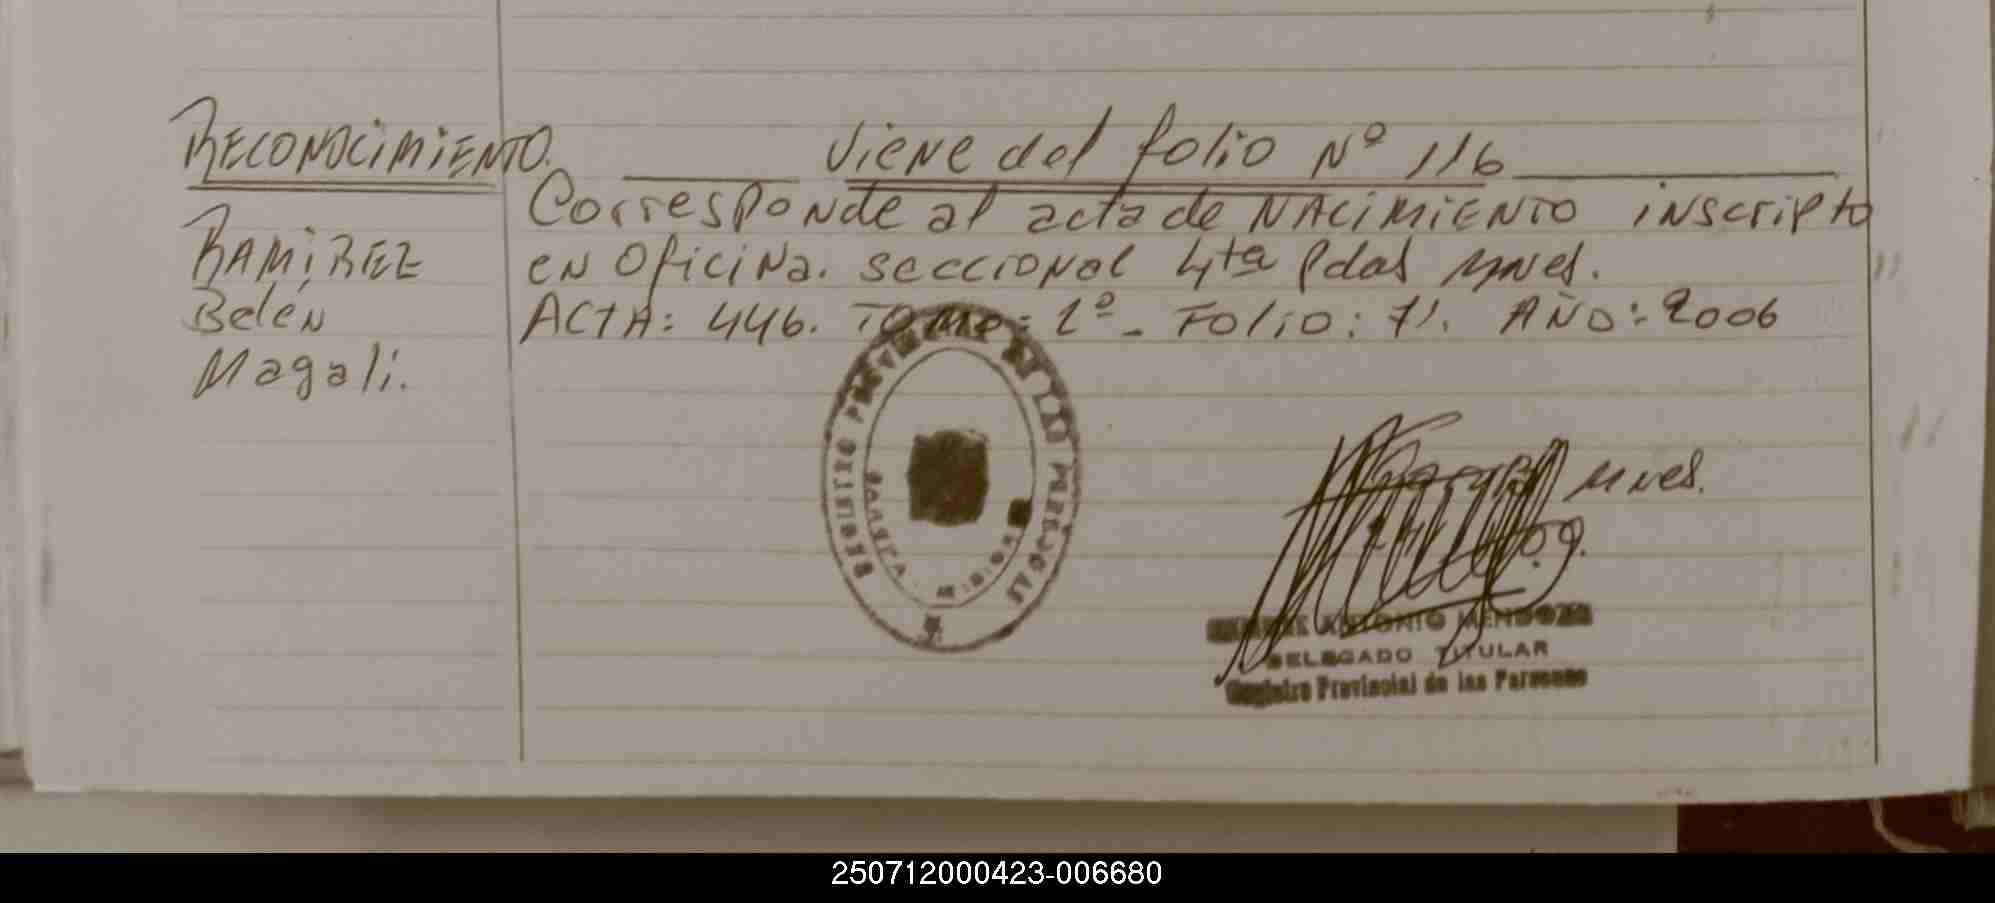 RECONOCIMIENTO.
RAMIREZ
Belén
Magali.
Viene del folio Nº 116
Corresponde al acta de NACIMIENTO inscripto
en Oficina. seccional 4ta Pdas Mnes.
ACTA: 446. TOMO: 2º - Folio: 71. AÑO: 2006
REGISTRO PROVINCIAL DE LAS PERSONAS
Mnes.
ANTONIO MENDOZA
DELEGADO TITULAR
Registro Provincial de las Personas
250712000423-006680